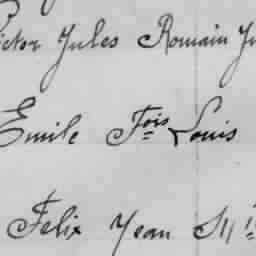 Victor Jules Romain Ju
Emile Fois Louis
Felix Jean M